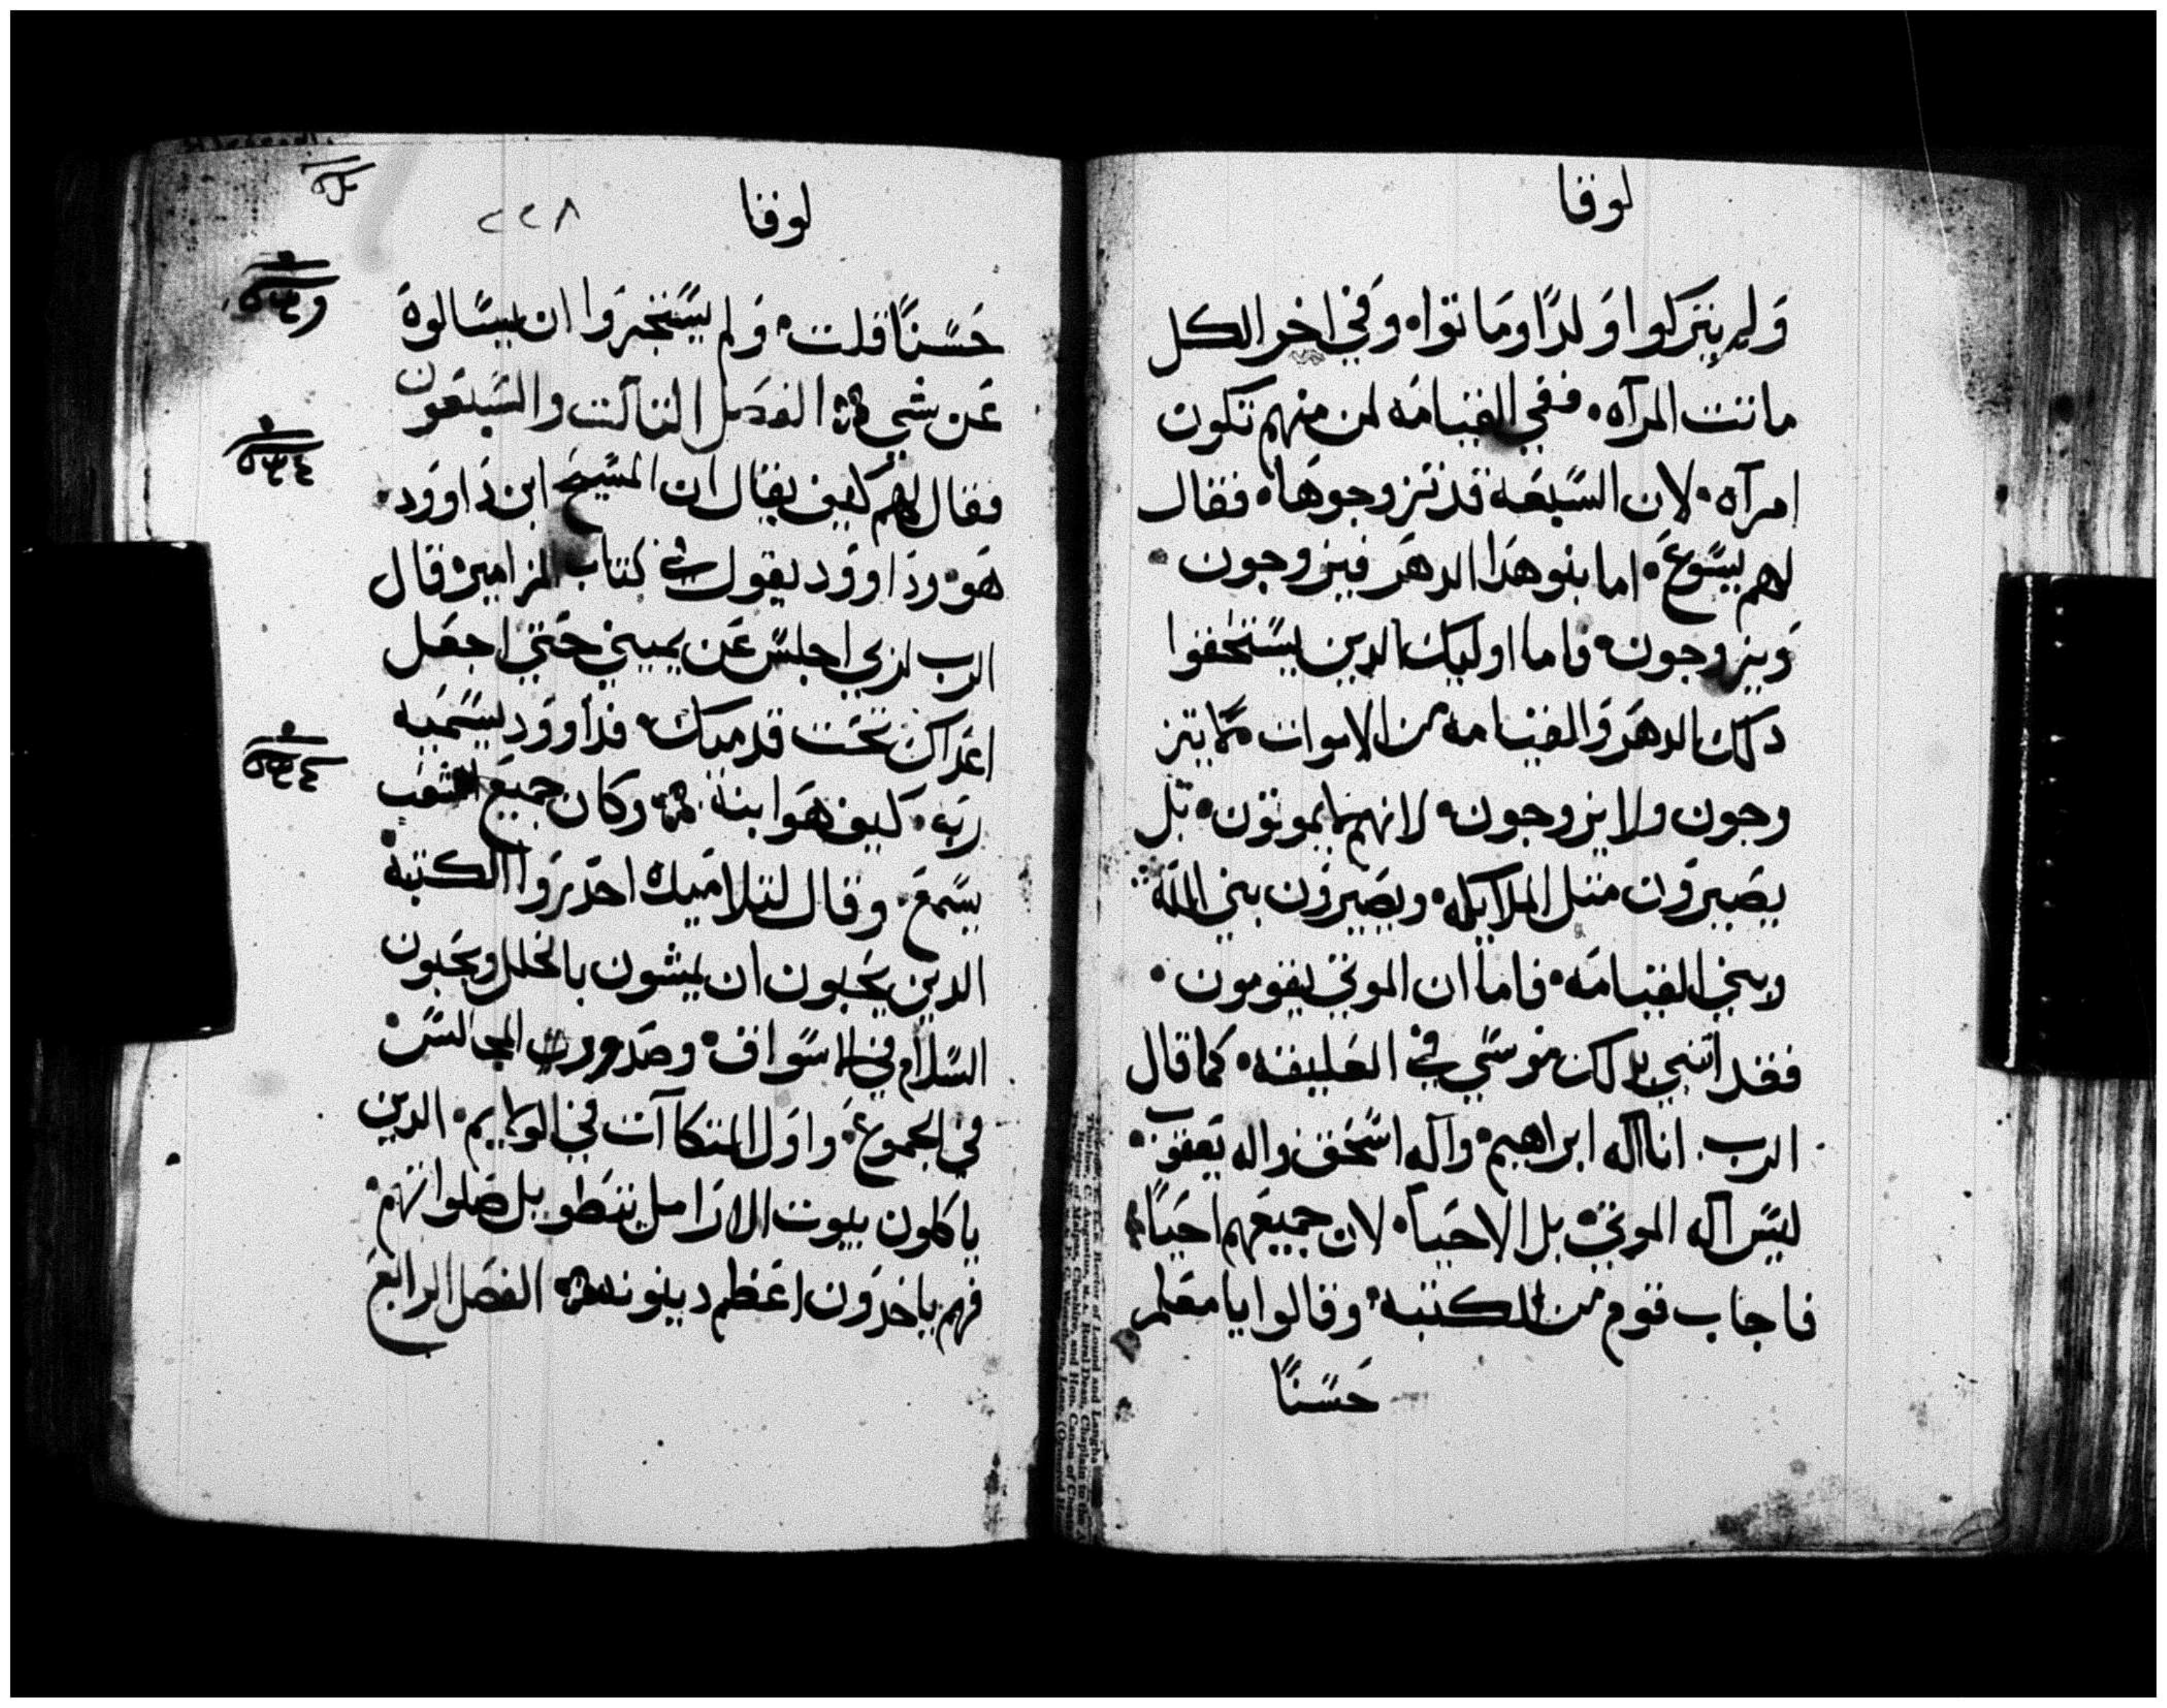 لوقا
ولم يتركوا ولدًا وماتوا. وفي اخر الكل
ماتت المرآه. ففي القيامه لمن منهم تكون
امرآه. لان السبعه قد تزوجوها. فقال
لهم يسوع. اما بنو هدا الدهر فيزوجون.
ويزوجون. فاما اوليك الدين يستحقوا
دلك الدهر والقيامه من الاموات فما يتز
وجون ولا يزوجون. لانهم لا يموتون. بل
يصيرون متل الملايكه. ويصيرون بني الله
وبني القيامه. فاما ان الموتي يقومون.
فقد انبي بدلك موسي في العليقه. كما قال
الرب. انا اله ابراهيم. واله اسحق واله يعقوب.
ليس اله الموتي. بل الاحيا. لان جميعهم احيا
فاجاب قوم من الكتبه. وقالوا يا معلم
حسنًا
لوقا
٢٢٨
حسنًا قلت. ولم يستجروا ان يسالوه
عن شي الفصل التالت والسبعون
فقال لهم كيف يقال ان المسيح ابن داوود.
هو. وداوود يقول في كتاب المزامير. قال
الرب لربي اجلس عن يميني حتي اجعل
اعداك تحت قدميك. فداوود يسميه
ربه. كيف هو ابنه. وكان جميع الشعب
يسمع. وقال لتلاميده احدروا الكتبه
الدين يحبون ان يمشون بالحلل ويحبون
السلام في الاسواق. وصدور المجالس
في الجموع. واول المتكاآت في الولايم. الدين
ياكلون بيوت الارامل بتطويل صلواتهم.
فهم ياخدون اعظم دينونه الفصل الرابع